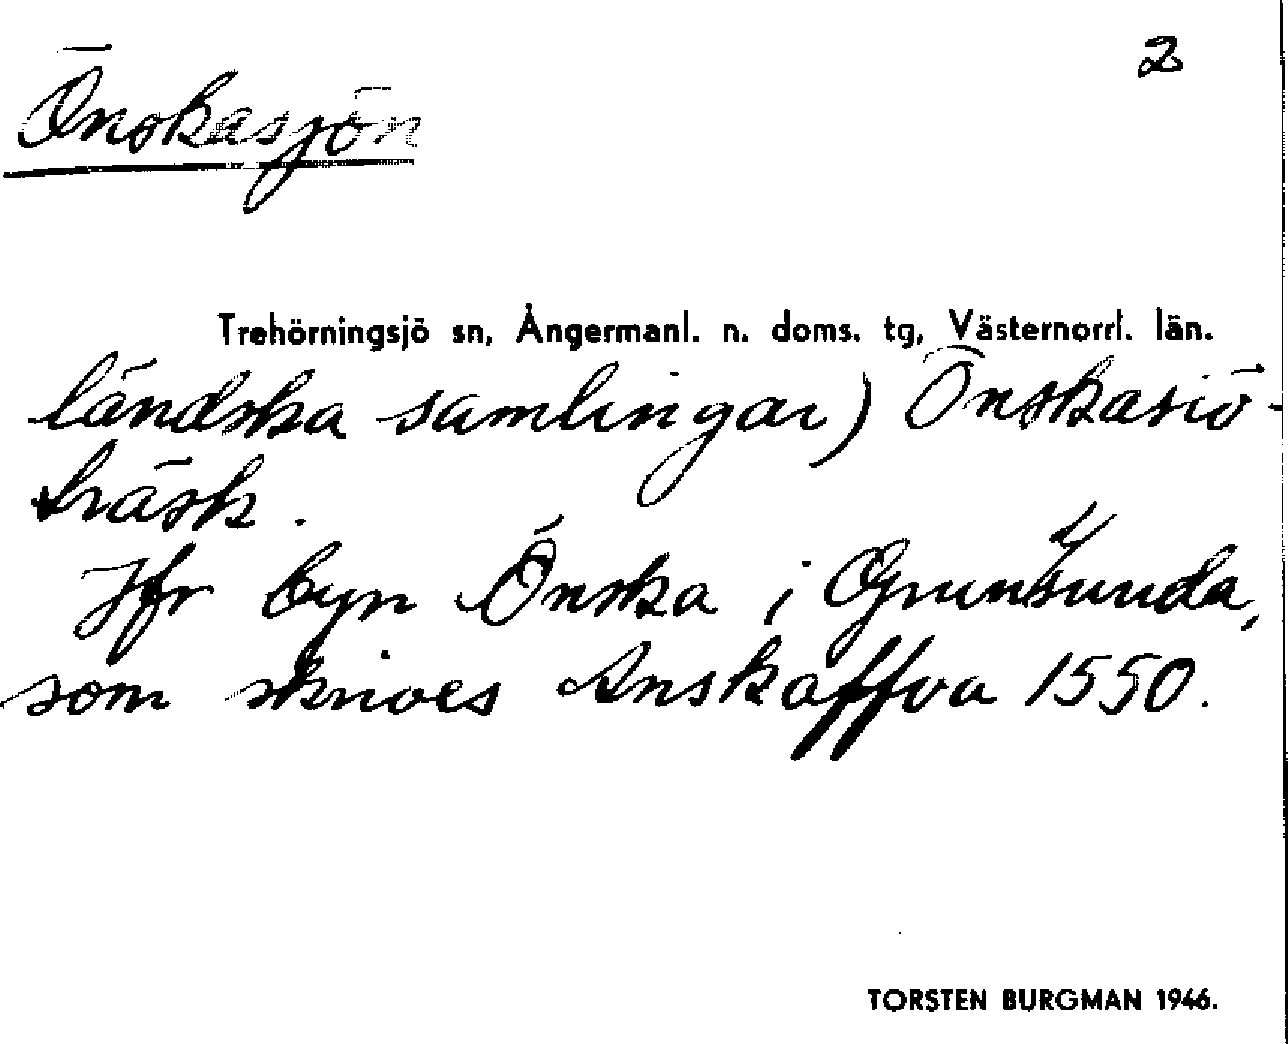 Önskasjön 2
Trehörningsjö sn, Ångermanl. n. doms. tg, Västernorrl. län.
ländska samlingar) Önskasiö-
träsk.
Jfr byn Önska i Grundsunda,
som skrives Anskaffva 1550.
TORSTEN BURGMAN 1946.